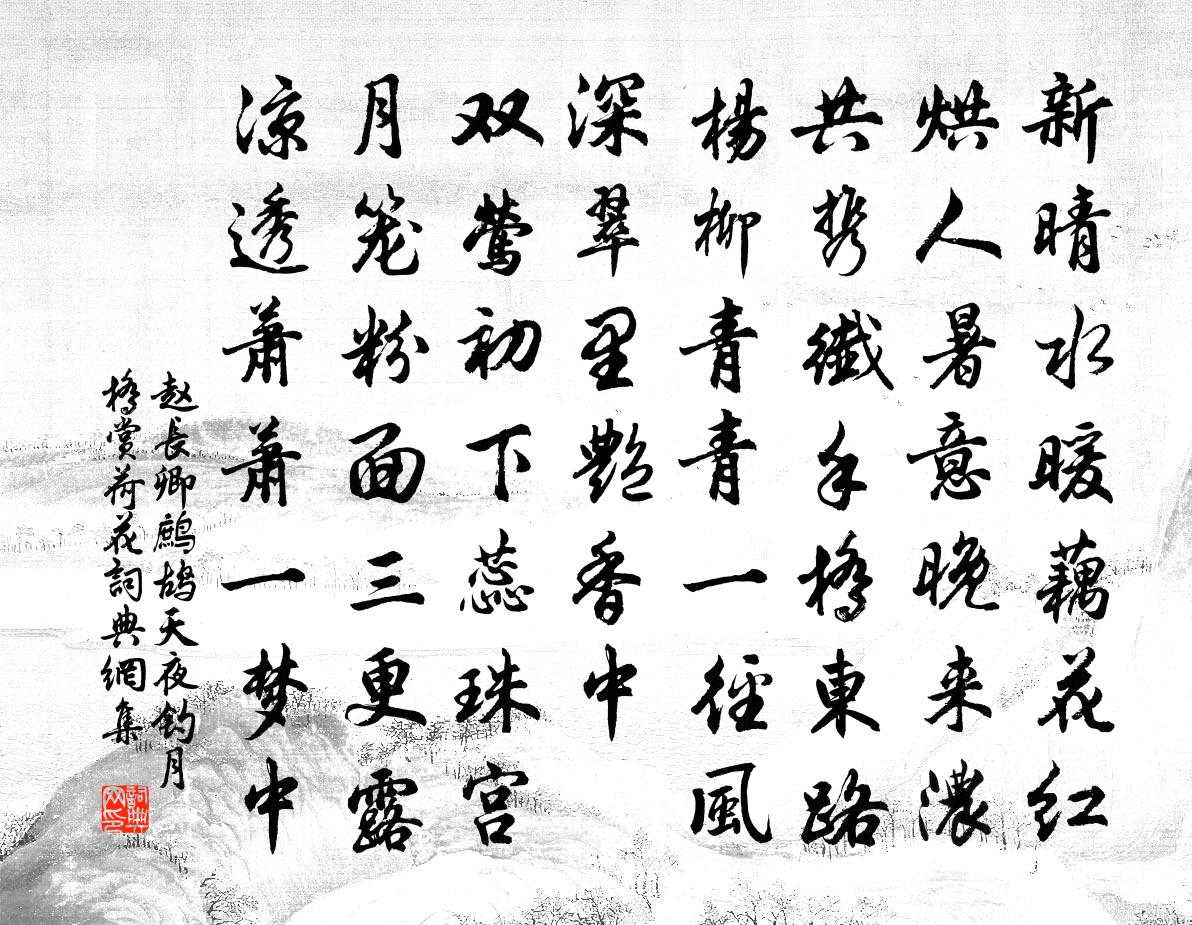 新晴水暖藕花红
烘人暑意晚来濃
共携纖手橋東路
楊柳青青一徑風
深翠里艷香中
双莺初下蕊珠宫
月笼粉面三更露
凉透萧萧一梦中
赵長卿鷓鴣天夜釣月
橋賞荷花詞典網集
詞典
网印